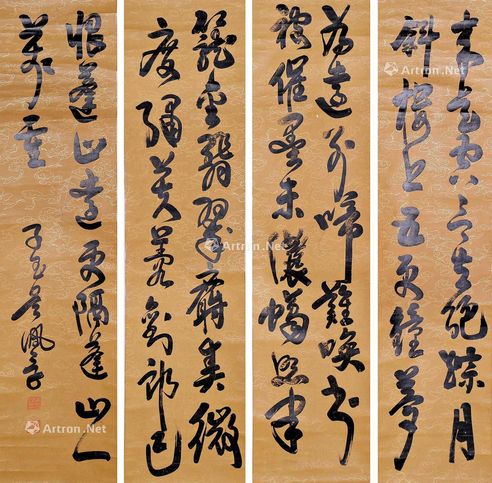 來是空言去絕踪月
斜樓上五更鐘夢
為遠別啼難喚書
被催墨未濃蠟照半
籠金翡翠麝熏微
度繡芙蓉劉郎已
恨蓬山遠更隔蓬山一
萬重
子玉吳佩孚
Artron.Net
Artron.Net
Artron.Net
Artron.Net